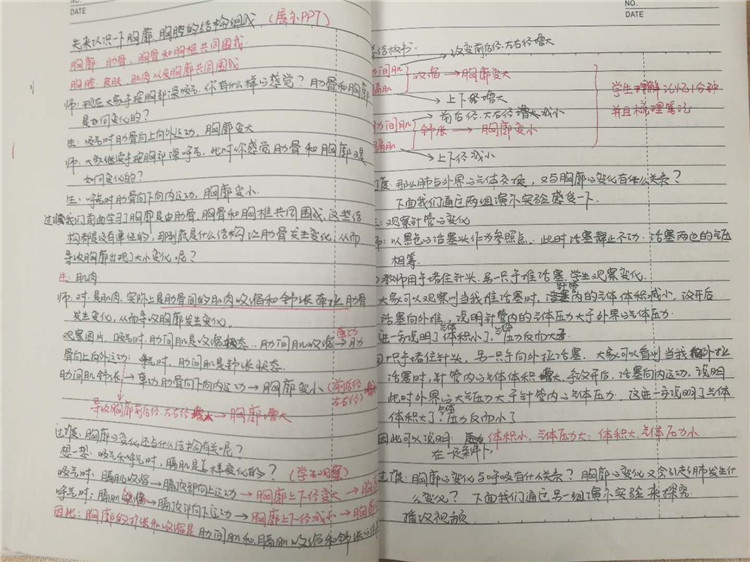 NO.
DATE
先来认识一下胸廓、胸腔的结构组成。(展示PPT)
胸廓:肋骨、胸骨和胸椎共同围成
胸腔:皮肤、肌肉以及胸廓共同围成
师:现在大家手按胸部深吸气,你有什么样的感觉?肋骨和胸廓
是如何变化的?
生:吸气时肋骨向上向外运动,胸廓变大
师:大家继续手按胸部深呼气,此时你感觉肋骨和胸廓又是
如何变化的?
生:呼气时肋骨向下向内运动,胸廓变小.
过渡:我们前面学习了胸廓是由肋骨、胸骨和胸椎共同围成,这些结
构都是没有弹性的,那到底是什么结构让肋骨发生变化,从而
导致胸廓出现了大小变化呢?
生:肌肉
师:对,是肌肉,实际上是肋骨间的肌肉收缩和舒张牵拉肋骨
发生变化,从而导致胸廓发生变化。
观察图片,吸气时,肋间肌是收缩状态,肋间肌收缩→肋
骨向上向外运动;呼气时,肋间肌是舒张状态.
肋间肌舒张→牵动肋骨向下向内运动→胸廓变小(前后径左右径)
导致胸廓前后径、左右径→胸廓增大
过渡:胸廓的变化还与什么结构有关呢?
想一想:吸气和呼气时,膈肌是怎样变化的?(学生观察)
吸气时:膈肌收缩→膈顶部向下运动→胸廓上下径变长→胸
呼气时:膈肌→膈顶部向运动→胸廓上下径减小→胸
因此:胸廓的扩张和收缩是肋间肌和膈肌收缩和舒张
NO.
DATE
总结板书: 收变前后径、左右径增大
肋间肌 收缩→胸廓变大
膈肌
上下径增大
前后径、左右径减小
肋间肌 舒张→胸廓变小
膈肌
上下径减小
学生理解记忆1分钟
并且梳理笔记
过渡:那么肺与外界的气体交换,又与胸廓的变化有什么关系?
下面我们通过两组演示实验感受一下.
观察针管的变化
以黑色的活塞头作为参照点,此时活塞静止不动,活塞两边的气压
相等.
教师用手堵住针头,另一只手推活塞,学生观察变化.
大家可以观察到当我推活塞时,针管内的气体体积减小,放开后
活塞向外推,说明针管内的气体压力大于外界的气体压力.
进一步说明了气体体积小了,气体压力反而大
用一只手堵住针头,另一只手向外拉活塞,大家可以看到当我向外拉
活塞时,针管内的气体体积增大,手放开后,活塞向内运动,说明
此时外界的大气压力大于针管内的气体压力,这进一步说明了气体
体积大了,气体压力反而小了
因此可以说明 体积小,气体压力大;体积大,气体压力小
在一定条件下
过渡:胸廓的变化与呼吸有什么关系?胸廓的变化又会引起肺发生什
么变化?下面我们通过另一组演示实验来探究.
播放视频